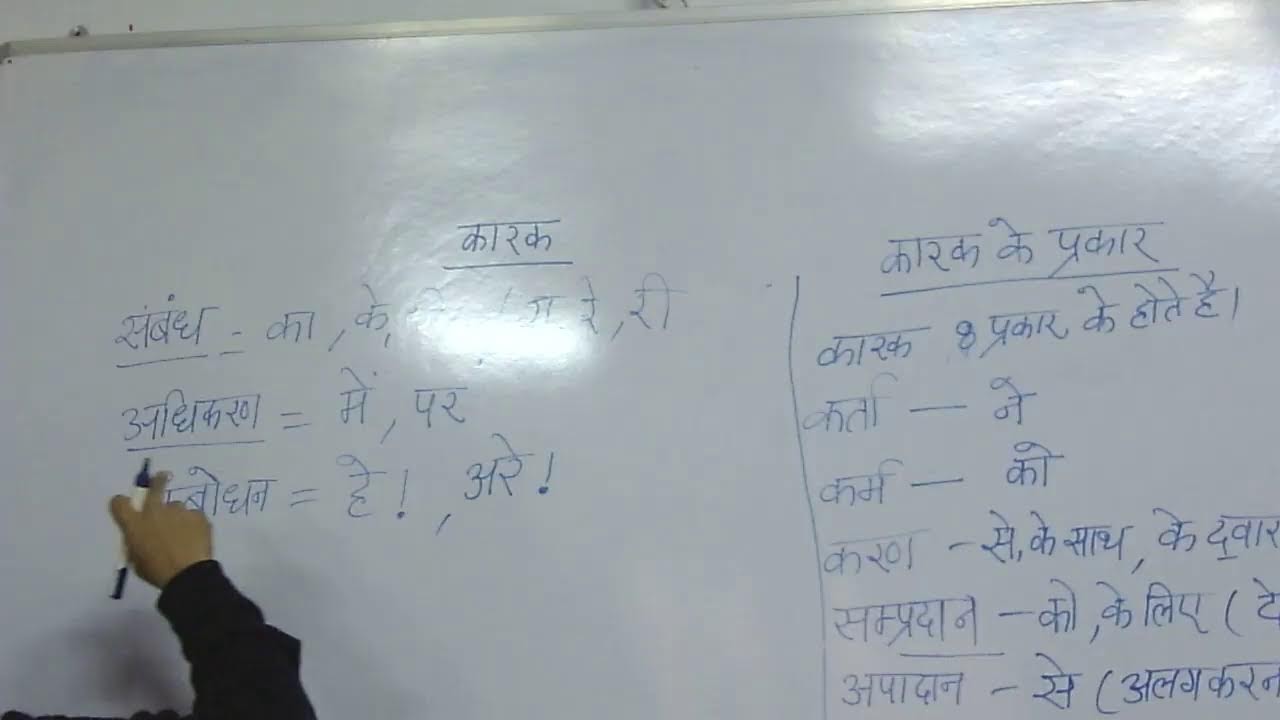 कारक
संबंध - का, के, रे, री
अधिकरण = में, पर
सम्बोधन = हे!, अरे!
कारक के प्रकार
कारक 8 प्रकार के होते है।
कर्ता — ने
कर्म — को
करण - से, के साथ, के द्वार
सम्प्रदान - को, के लिए (दे
अपादान - से (अलग करन